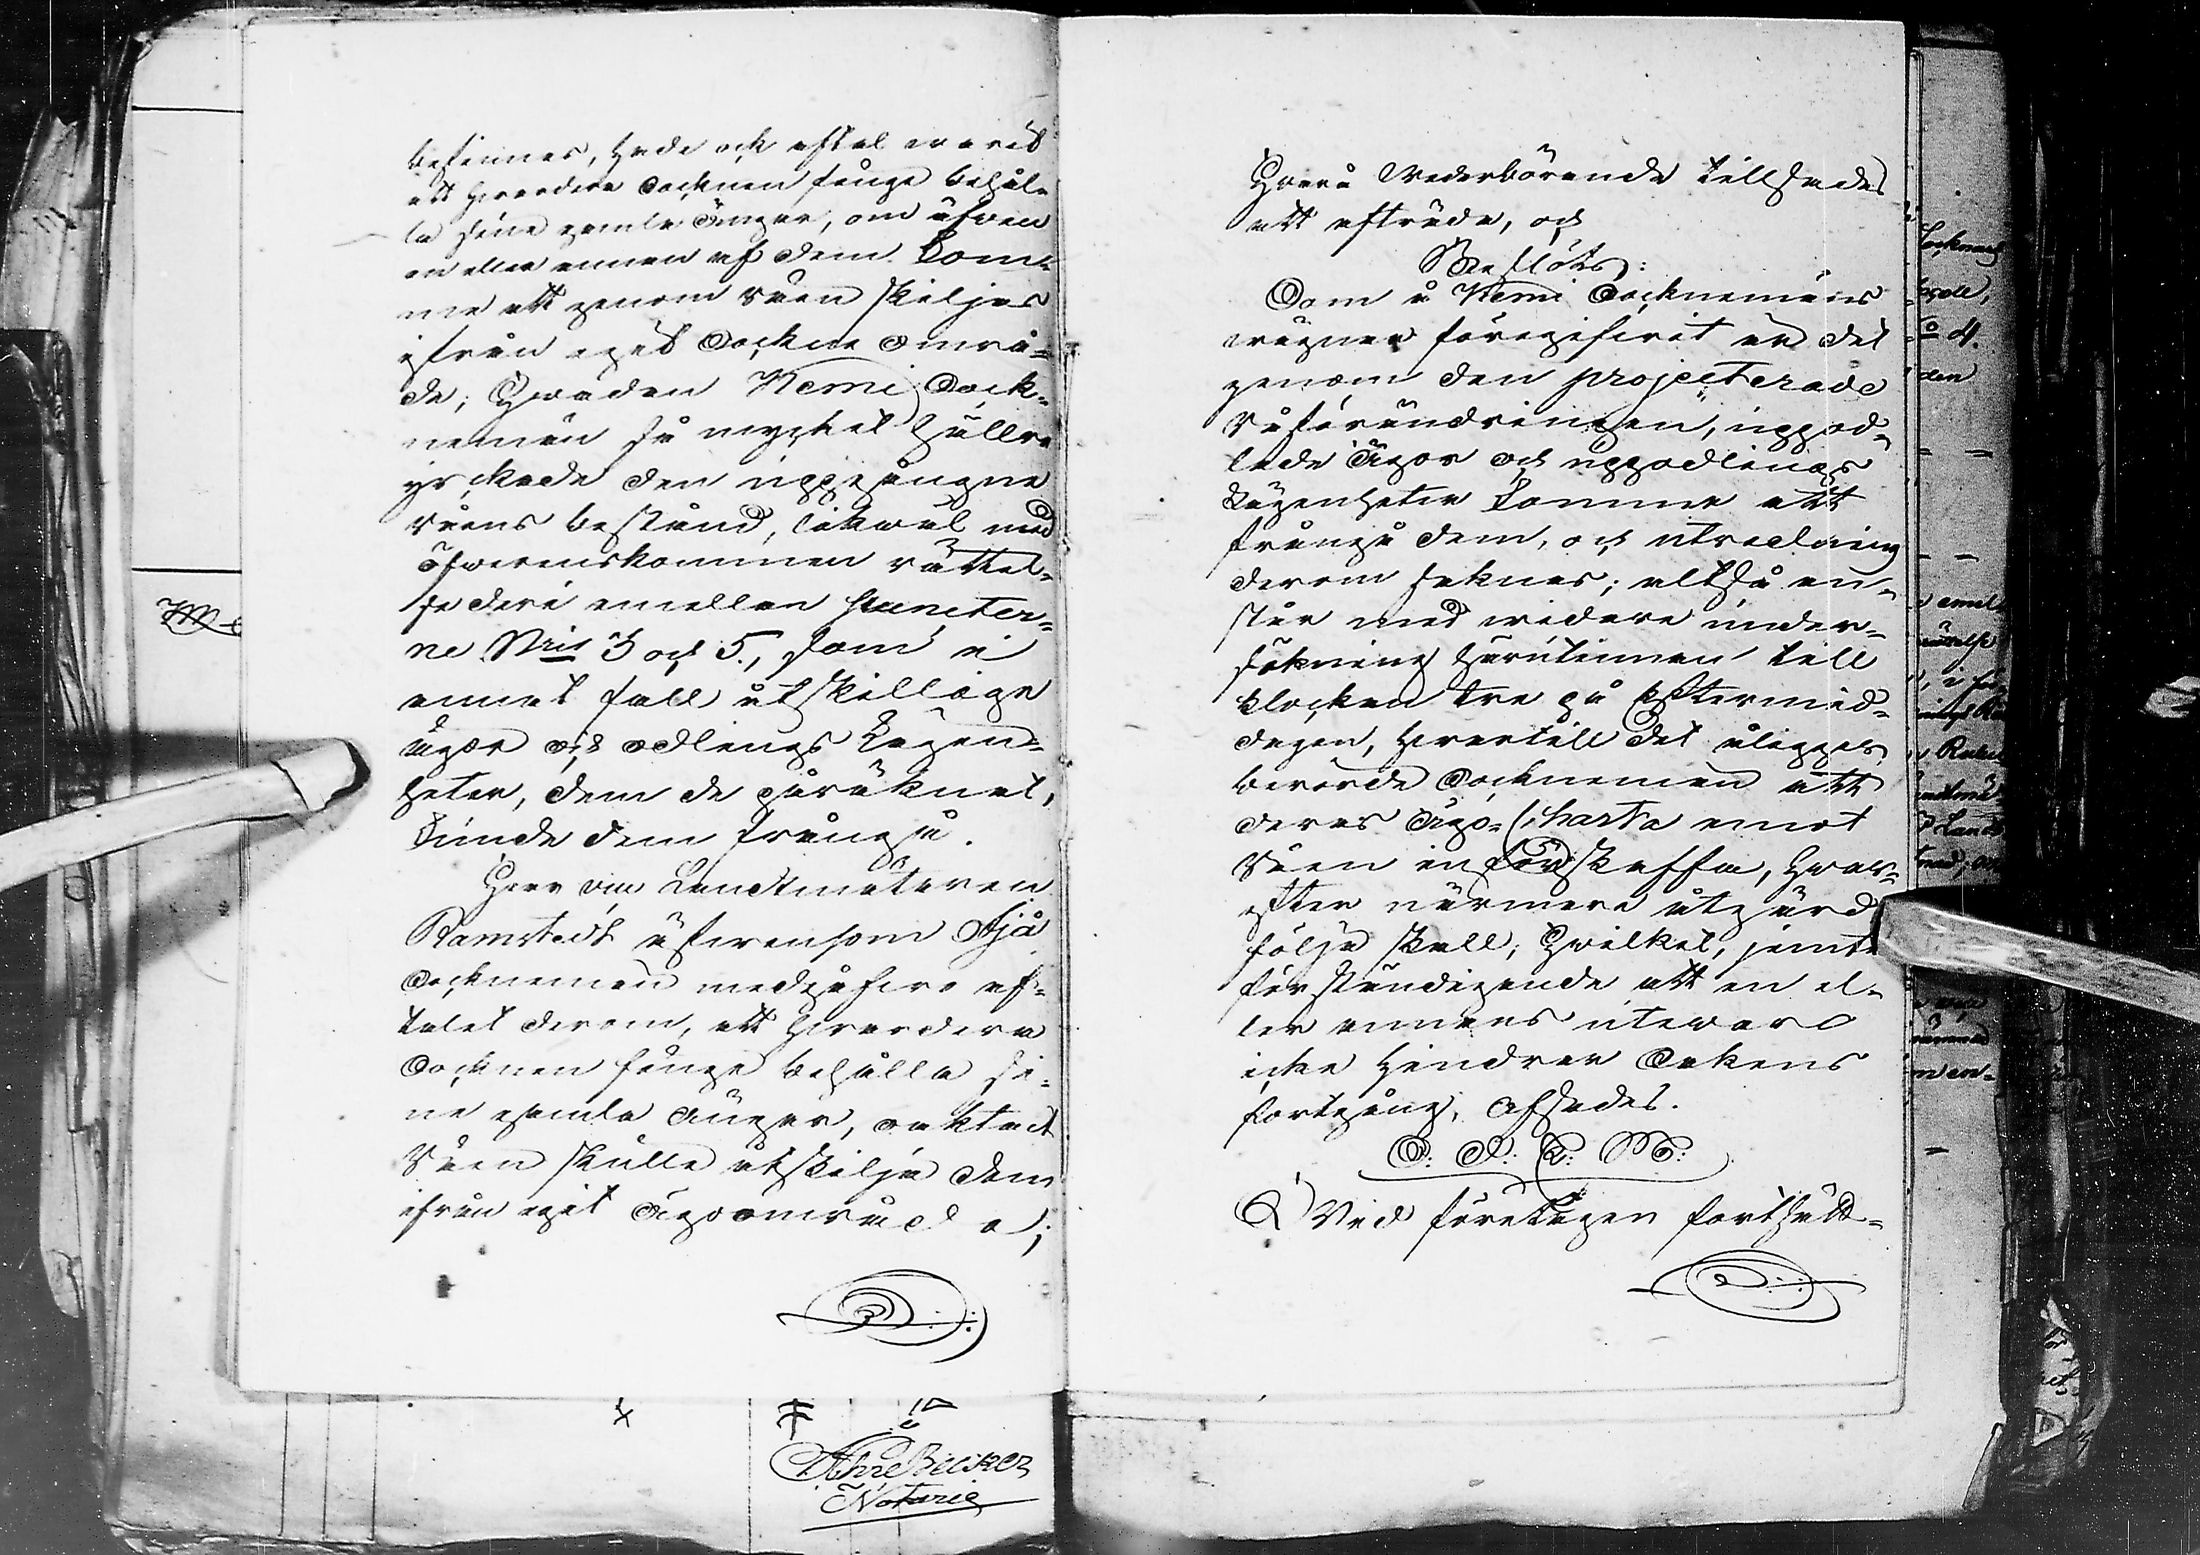 befinnes, hade ock aftal warit
att hwardera Socknen finge behål-
la sine gamla Ängar, om äfwen
en eller annan af dem komm-
me att genom Råen skiljas
ifrån eget Sockne Områ-
de; Hwaden Kemi Sock-
nemän så mycket hällre
yrckade den uppgångne
Råens bestånd, likwäl med
öfwerenskommen rättel-
se deri emellan puncter-
ne Nris 3 och 5., som i
annat fall åtskillige
ägor och odlings Lägen-
heter, dem de påräknat,
kunde dem frångå.
Herr vice Landtmätaren
Ramstedt äfwensom Ijå
Socknemän medgåfwo af-
talet derom, att hwardera
Socknen finge behålla si-
ne gamla Ängar, oaktadt
Råen skulle åtskilja dem
ifrån eget Ägoområde;
Härå Wederbörande tillsades
att afträda, och
Beslöts:
Som å Kemi Socknemäns
wägnar föregifwit är det
genom den projecterade
Råförändringen, uppod-
lade Ägor och uppodlings
Lägenheter komme att
frångå dem, och utredning
derom saknas; altså an-
står med widare under-
sökning härutinnan till
klockan tre på Eftermid-
dagen, hwartill det ålägges
berörde Socknemän att
deras Ägo-Charta emot
Råen införskaffa, hwar-
efter närmare åtgärd
följa skall; Hwilket, jemte
förständigande att en el-
ler annans utewaro
icke hindrar Sakens
fortgång, afsades.
Wid företagen fortsätt-
Notarie